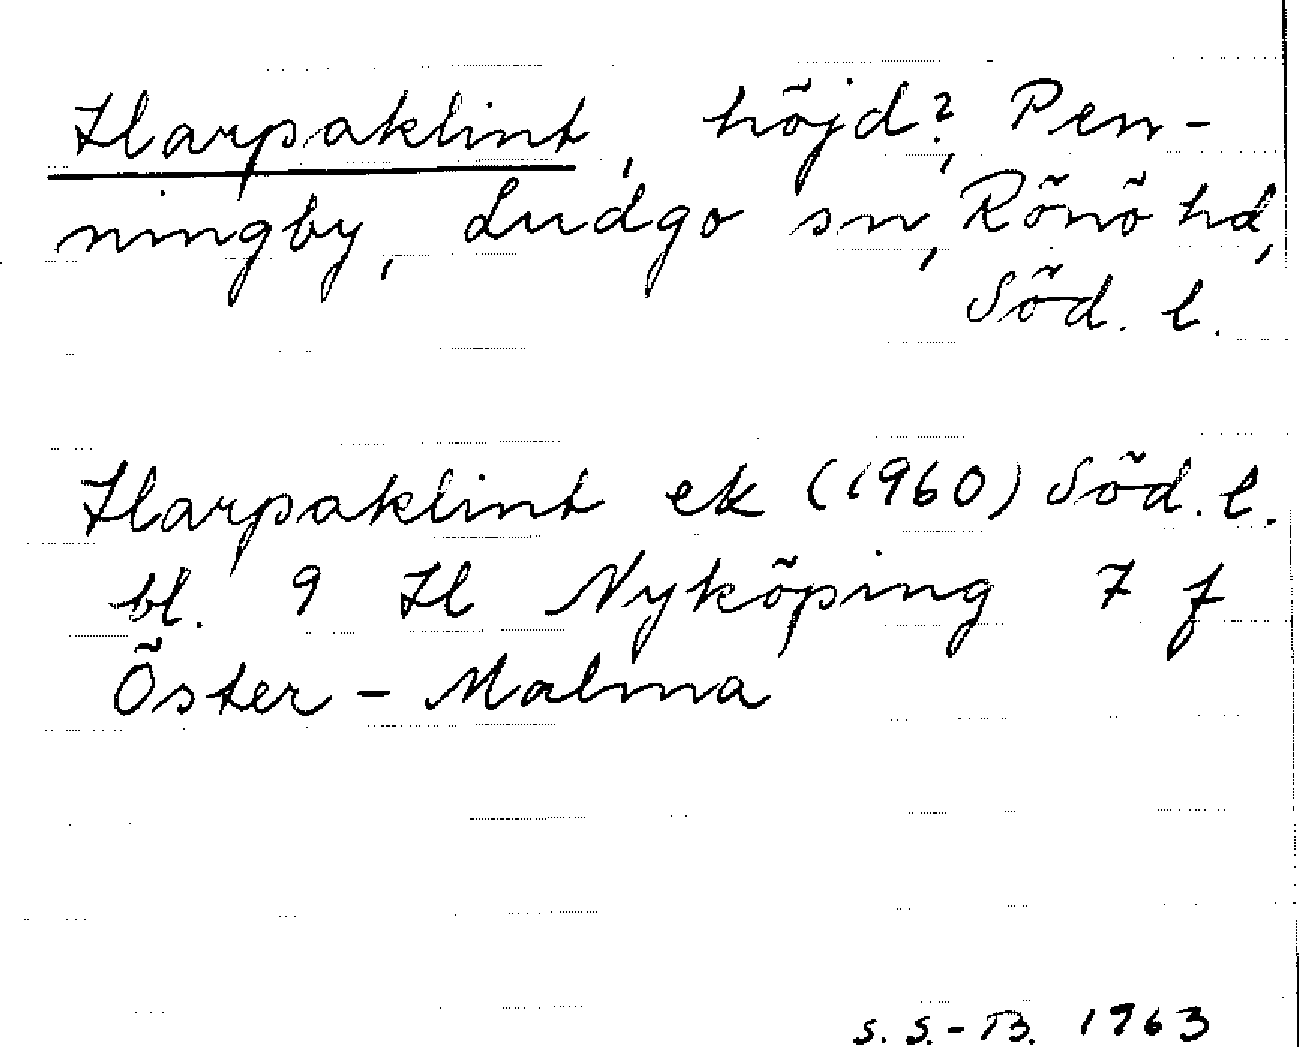 Harpaklint, höjd?, Pen-
ningby, Ludgo sn, Rönö hd,
Söd. l.
Harpaklint ek (1960) Söd. l.
bl. 9 H Nyköping 7 f
Öster-Malma
S. S.-B. 1963